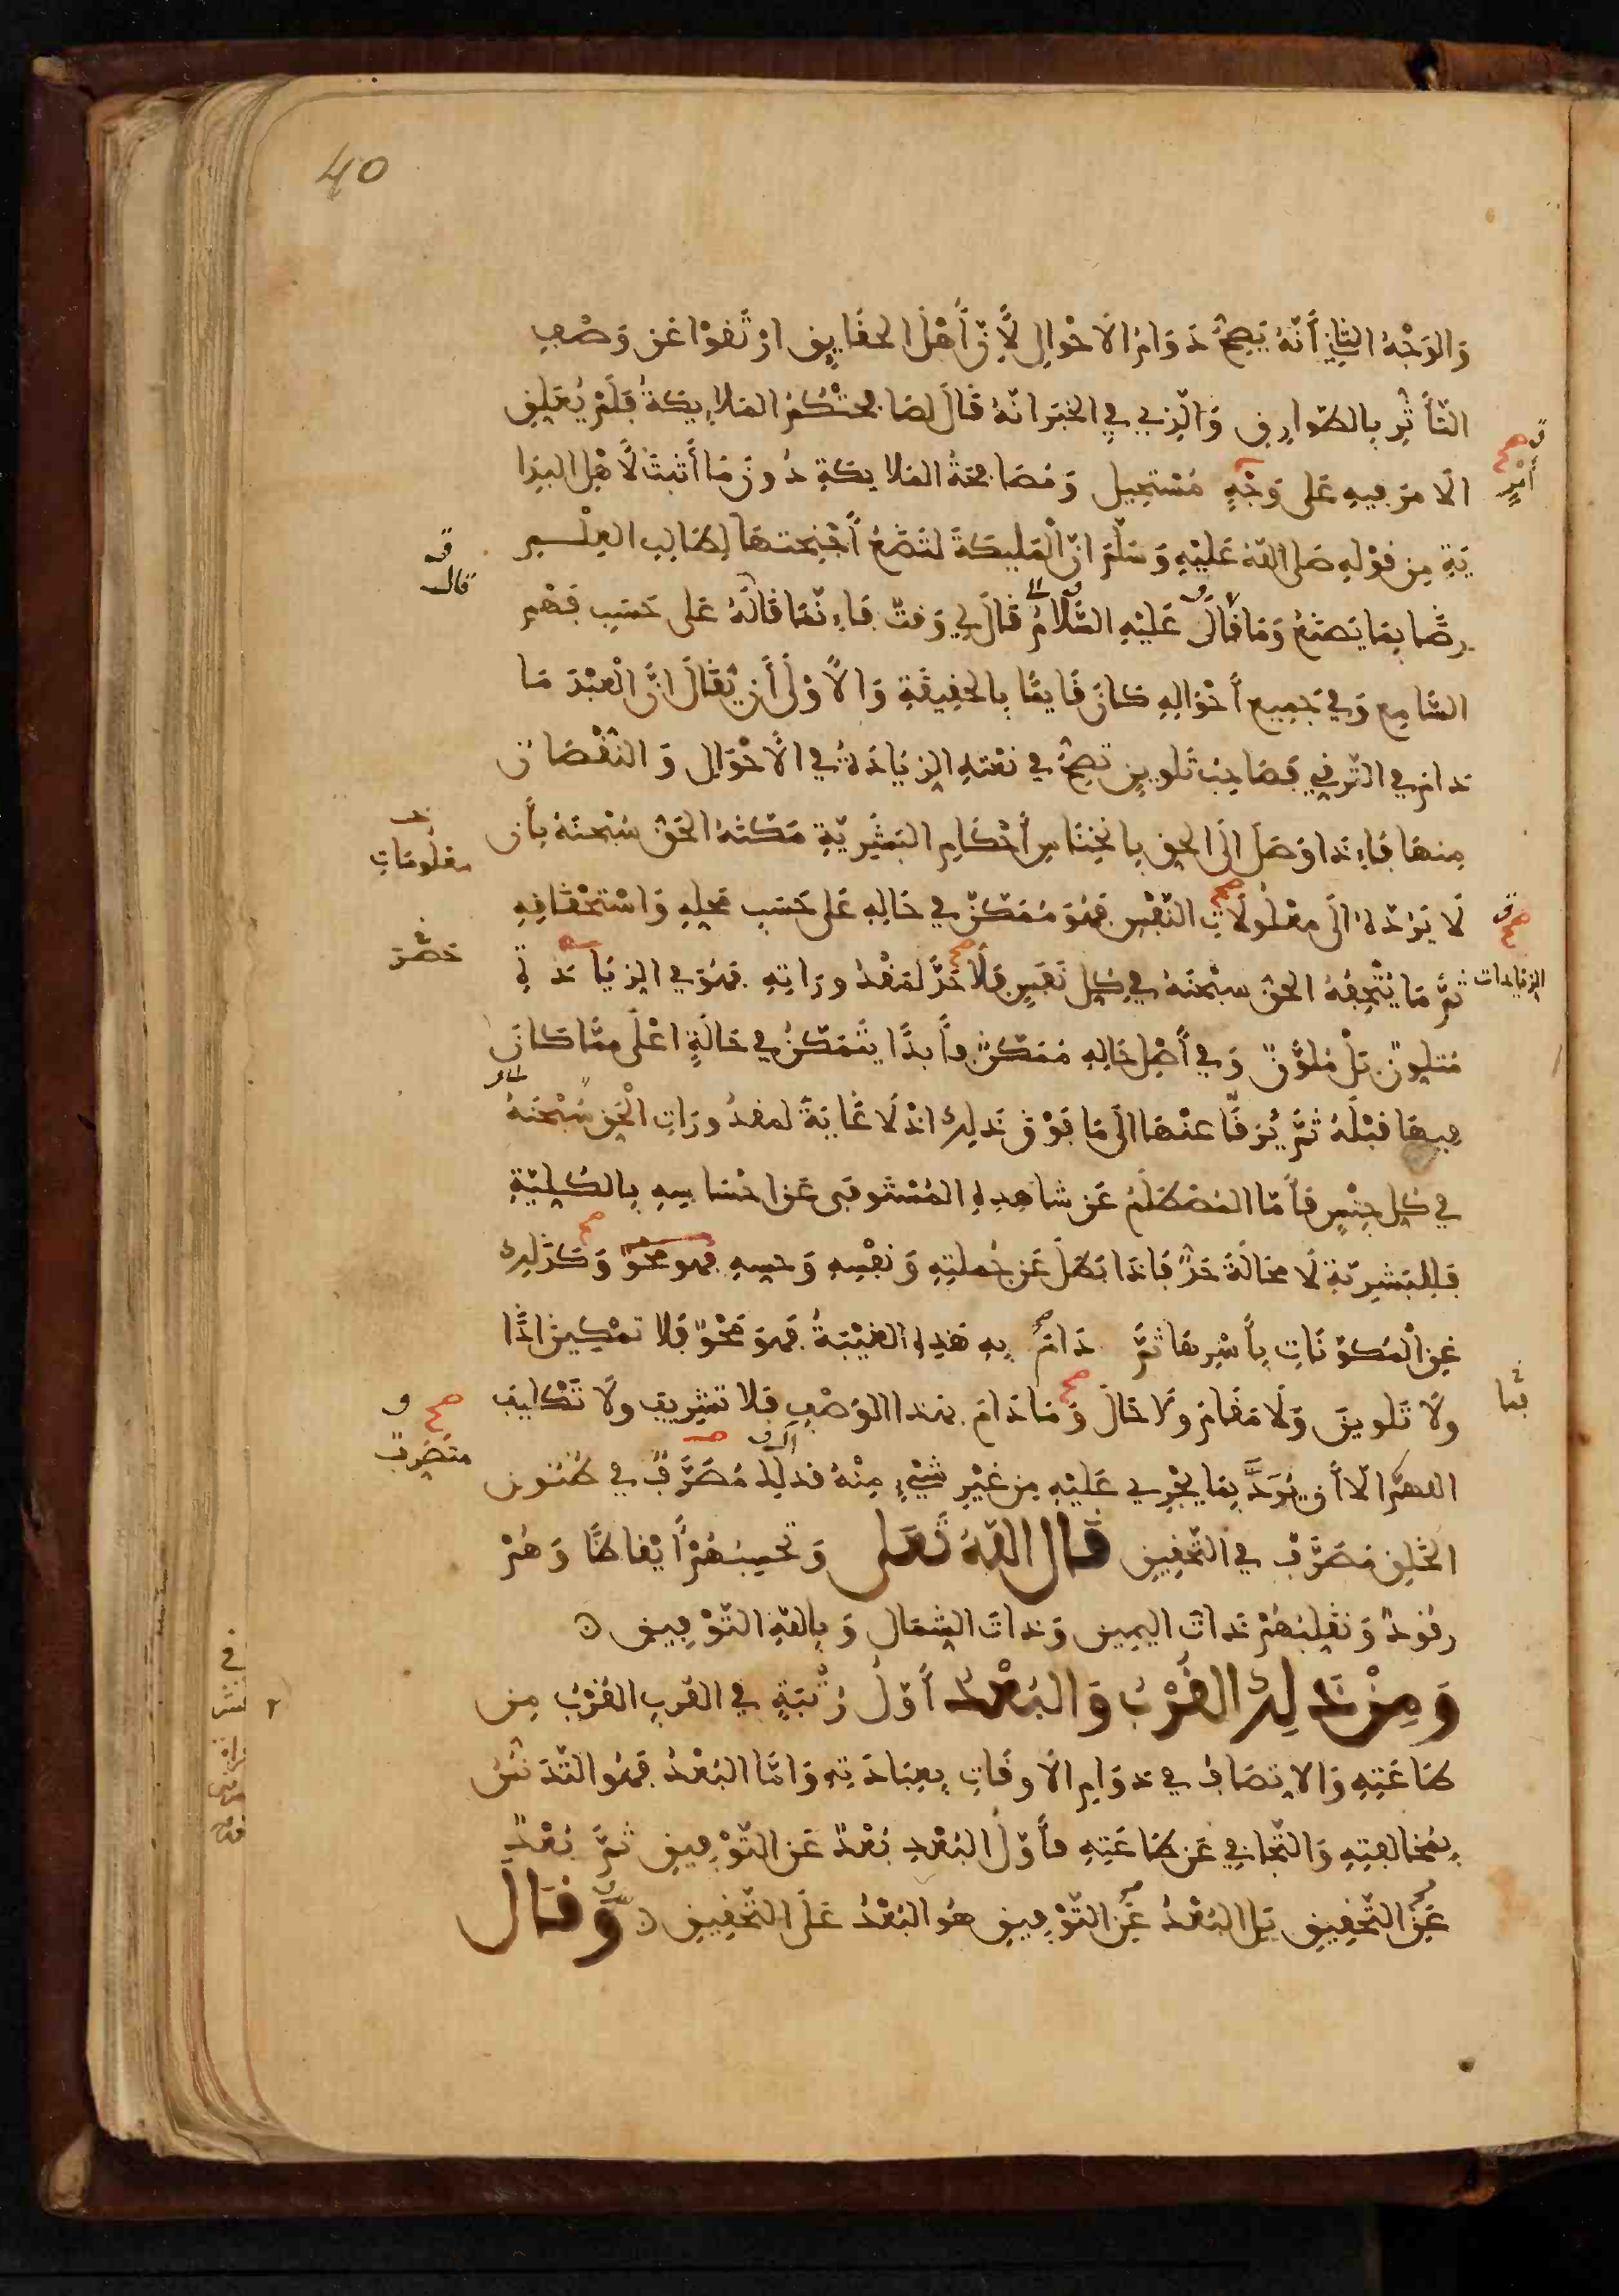 40
وَالوَجْهُ الثَّانِي أَنَّهُ يَصِحُّ دَوَامُ الاَحْوَالِ لِأَنَّ أَهْلَ الحَقَايِقِ ارْتَقَوْا عَن وَصْفِ
التَّأَثُّرِ بِالطَّوَارِقِ وَالَّذِي فِي الخَبَرِ انَّهُ قَالَ لصَافَحَتْكُمُ المَلاَيِكَةُ فَلَمْ يُعَلِّقِ
الاَمْرَ فِيهِ عَلى وَجْهٍ مُسْتَحِيل وَمُصَافَحَةُ المَلاَيِكَةِ دُونَ مَا أَثْبَتَ لأَهْلِ البِدَا
يَةِ مِن قَوْلِهِ صَلى اللهُ عَلَيْهِ وَسَلَّمَ انَّ الْمَلَيِكَةَ لتَضَعُ أَجْنِحَتَهَا لِطَالِبِ العِلْـــمِ
رِضًا بِمَا يَصْنَعُ وَمَا قَالَ عَلَيْهِ السَّلاَمُ قَالَ لِي وَقتٌ فَاءِنَّمَا قَالَهُ عَلى حَسَبِ فَهْمِ
السَّامِعِ وَفِي جَمِيعِ أَحْوَالِهِ كَانَ قَايِمًا بِالحَقِيقَةِ وَالأَوْلَى أَن يُقَالَ انَّ الْعَبْدَ مَا
دَامَ فِي التَّرَقِّي فَصَاحِبُ تَلوِينٍ تَصِحُّ فِي نَعْتِهِ الزِيَادَةُ فِي الأَحْوَالِ وَالنُّقْصَان
مِنهَا فَاءِذَا وَصَلَ الَى الحَقِّ بِانْخِنَاسِ أَحْكَامِ البَشَرِيَّةِ مَكَّنَهُ الحَقُّ سُبْحَنَهُ بِأَن
لَا يَرُدَّهُ الَى مَعْلُولَاتِ النَّفْسِ فَهُوَ مُمَكَّنٌ فِي حَالِهِ عَلى حَسَبِ مَحَلِّهِ وَاسْتِحْقَاقِهِ
ثُمَّ مَا يُتْحِفُهُ الحَقُّ سبْحَنَهُ فِي كُلِّ نَفَسٍ فَلاَ حَدَّ لمَقْدُورَاتِهِ فَهُوَ فِي الزِيَادَةِ
مُتلَوِّنٌ بَلْ مُلَوَّنٌ وَفِي أَصْلِ حَالِهِ مُمَكَّنٌ فَأَبَدًا يَتَمَكَّنُ فِي حَالَةٍ اعْلَى مِمَّا كَانَ
فِيهَا قَبْلَهُ ثُمَّ يُرَقَّا عَنْهَا الَى مَا فَوْقَ ذَلِكَ اذْ لَا غَايَةَ لمَقدُورَاتِ الْحَقِّ سُبْحَنَهُ
فِي كُلِّ جِنْسٍ فَأَمَّا المُصْطَلَمُ عَن شَاهِدِهِ المُسْتَوفَى عَن احْسَاسِهِ بِالكُلِّيَّةِ
فَلِلبَشَرِيَّةِ لَا مَحَالَةَ حَدٌّ فَاذَا بَطَلَ عَن جُملَتِهِ وَنَفْسِهِ وَحِسِهِ فَهو محوٌ وَكَذَلِكَ
عَنِ الْمُكَوَّنَاتِ بِأَسْرِهَا ثُمَّ دَامَ بِهِ هَذِهِ الغَيْبَةُ فَهوَ مَحْوٌ فَلا تَمْكِينَ اذًا
وَلَا تَلوِينَ وَلَا مَقَامَ وَلَا حَالَ وَمَا دَامَ بهذا الوَصْفِ فَلا تَشْرِيفَ ولَا تَكْلِيفَ
اللهمَّ الاَّ أَن يُرَدَّ بِمَا يَجْرِي عَلَيْهِ مِن غَيْرِ شَيْءٍ مِنْهُ فذلِكَ مُصَرَّفٌ فِي ظُنُون
الخَلقِ مُصَرَّفٌ فِي التَّحْقِيقِ قَالَ اللهُ تَعَلى وَتَحْسِبُهُمْ أَيْقَاظًا وَهُمْ
رُقُودٌ وَنُقَلِّبُهُمْ ذَاتَ اليَمِينِ وَذَاتَ الشِمَالِ وَبِاللهِ التَّوْفِيق
وَمِنْ ذَلِكَ القُرْبُ وَالبُعْدُ أَوَّلُ رُتْبَةٍ فِي القُرْبِ القُرْبُ مِن
طَاعَتِهِ وَالاِتِّصَافُ فِي دَوَامِ الأَوقَاتِ بِعِبَادَتِهِ وَامَّا البُعْدُ فَهُوَ التَّدَنُّسُ
بِمُخَالَفَتِهِ وَالتَّجَافِي عَن طَاعَتِهِ فَأَوَّلُ البُعْدِ بُعْدٌ عَن التَّوْفِيقِ ثُمَّ بُعْدٌ
عَنِ التَّحْقِيقِ بَلِ البُعْدُ عَنِ التَّوْفِيقِ هُوَ البُعْدُ عَنِ التَّحْقِيقِ وَقَال
أَمْرٍ
قال
مَعْلُومَاتِ
الزِيَادات
مُتَصَرِّفٌ